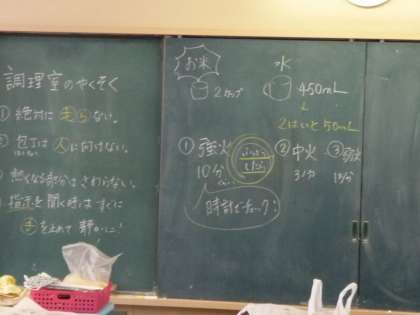 調理室のやくそく
① 絶対に走らない。
② 包丁は人に向けない。
熱くなる部分はさわらない。
指示を聞く時はすぐに
手を止めて静かに!
お米
2カップ
水
450mL
2はいと50mL
① 強火
10分
② 中火
③ 弱火
時計でチェック!